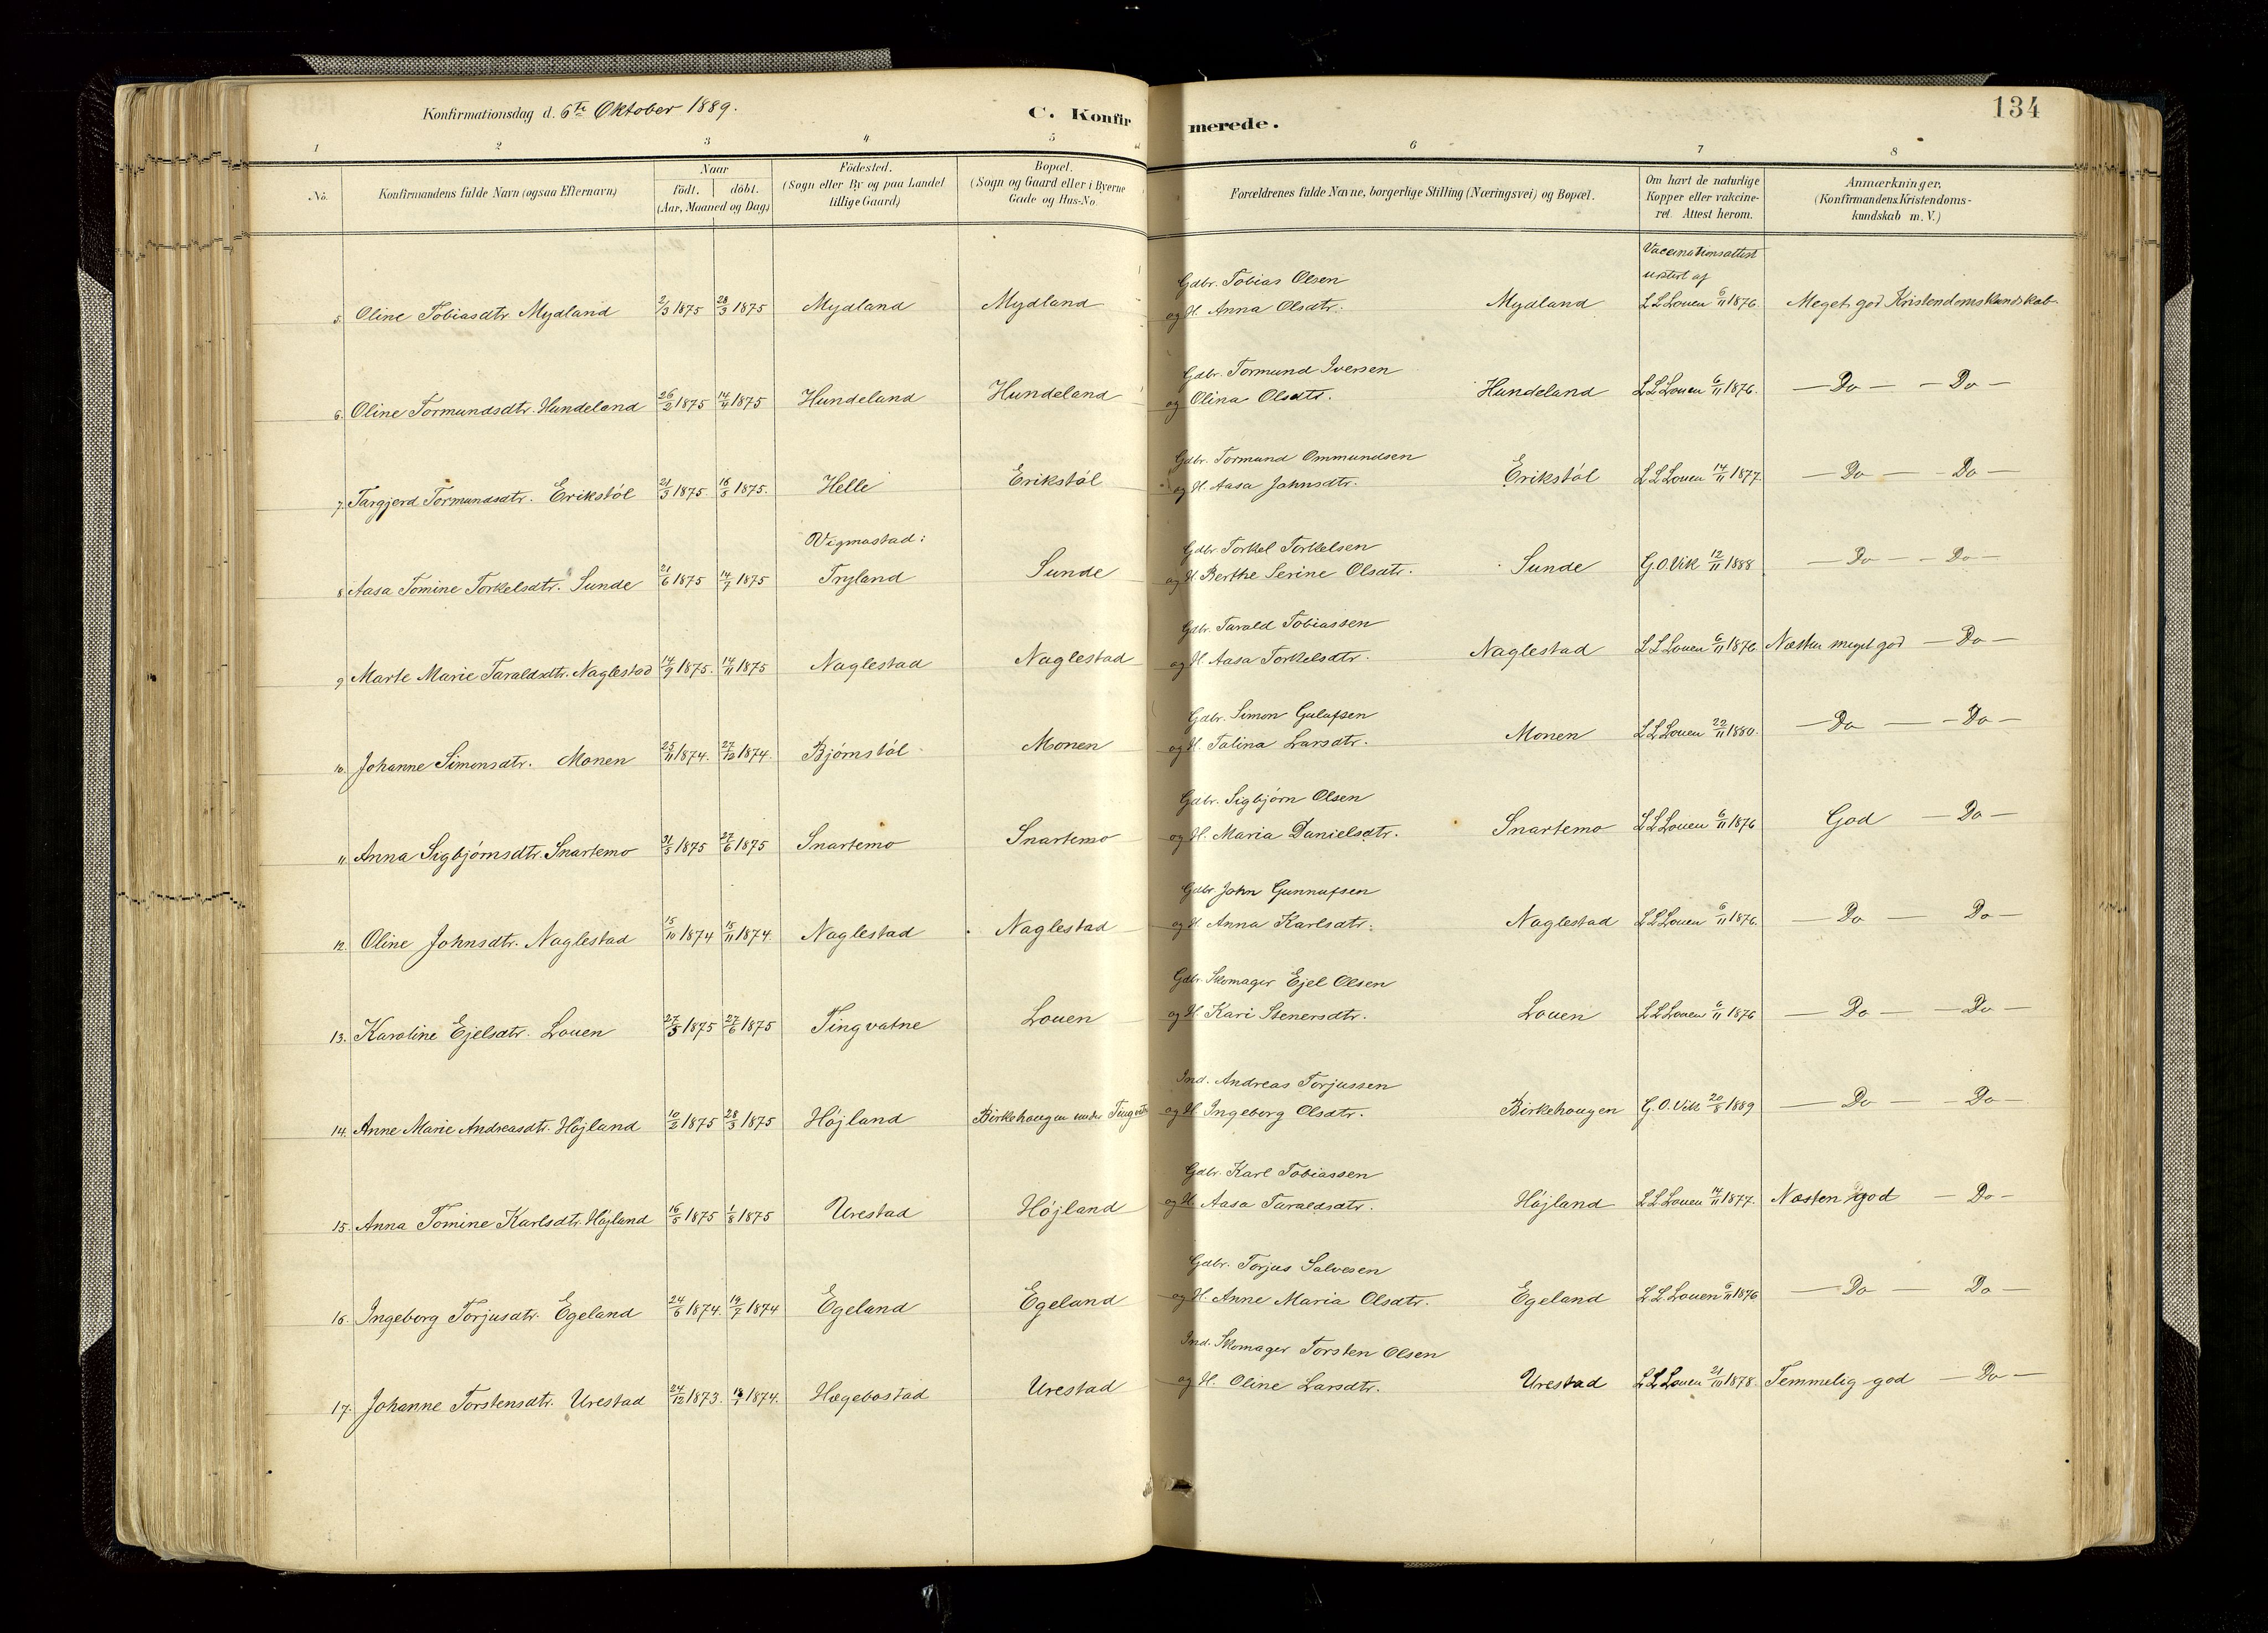 Konfirmationsdag d. 6te Oktober 1889.
C. Konfirmerede.
134
1 2 3 4 5 6 7 8
No.
Konfirmandens fulde Navn (ogsaa Efternavn)
Naar
födt. döbt.
(Aar, Maaned og Dag)
Födested.
(Sogn eller By og paa Landet
tillige Gaard)
Bopæl.
(Sogn og Gaard eller i Byerne
Gade og Hus-No.
Forældrenes fulde Navne, borgerlige Stilling (Næringsvei) og Bopæl.
Om havt de naturlige
Kopper eller vakcine-
ret. Attest herom.
Anmærkninger.
(Konfirmandens Kristendoms-
kundskab m. V.)
Vaccinationsattest
udstet af
Gdbr. Tobias Olsen
5. Oline Tobiasdtr. Mydland 2/3 1875 28/3 1875 Mydland Mydland og H. Anna Olsdtr. Mydland L L Louen 6/11 1876. Meget god Kristendomskundskab.
Gdbr. Tormund Iversen
6. Oline Tormundsdtr. Hundeland 26/2 1875 14/4 1875 Hundeland Hundeland og Olina Olsdtr. Hundeland L L Louen 6/11 1876. — Do — — Do —
Gdbr. Tormund Ommundsen
7. Targjerd Tormundsdtr. Erikstøl 21/3 1875 16/5 1875. Helle Erikstøl og H. Aasa Johnsdtr. Erikstøl L L Louen 14/11 1877. — Do — — Do —
Vigmostad:
Gdbr. Torkel Torkelsen
8. Aasa Tomine Torkelsdtr. Sunde 21/6 1875 14/7 1875 Tryland Sunde og H. Berthe Serine Olsdtr. Sunde G. O. Vik 12/11 1888 — Do — — Do —
Gdbr. Tarald Tobiassen
9. Marte Marie Taraldsdtr. Naglestad 14/9 1875. 14/11 1875 Naglestad Naglestad og H. Aasa Torkelsdtr. Naglestad L L Louen 6/11 1876 Næsten meget god — Do —
Gdbr. Simon Gulufsen
10. Johanne Simonsdtr. Monen 25/11 1874. 27/12 1874. Bjørnstøl Monen og H. Talina Larsdtr. Monen L L Louen 22/11 1880. — Do — — Do —
Gdbr. Sigbjørn Olsen
11. Anna Sigbjørnsdtr. Snartemo 31/5 1875 27/6 1875 Snartemo Snartemo og H. Maria Danielsdtr. Snartemo L L Louen 6/11 1876 God — Do —
Gdbr. John Gunnufsen
12. Oline Johnsdtr. Naglestad 15/10 1874 15/11 1874. Naglestad Naglestad og H. Anna Karlsdtr. Naglestad L L Louen 6/11 1876. — Do — Do —
Gdbr. Skomager Ejel Olsen
13. Karoline Ejelsdtr. Louen 27/5 1875 27/6 1875 Tingvatne Louen og H. Kari Stenersdtr. Louen L L Louen 6/11 1876 — Do — — Do —
Ind. Andreas Torjussen
14. Anne Marie Andreasdtr. Højland 10/2 1875 28/3 1875 Højland Birkehaugen under Tingvatne og H. Ingeborg Olsdtr. Birkehaugen G. O. Vik 20/8 1889 — Do — — Do —
Gdbr. Karl Tobiassen
15. Anna Tomine Karlsdtr. Højland 16/5 1875 1/8 1875 Urestad Højland og H. Aasa Taraldsdtr. Højland L L Louen 14/11 1877. Næsten god — Do —
Gdbr. Torjus Salvesen
16. Ingeborg Torjusdtr. Egeland 24/6 1874. 19/7 1874 Egeland Egeland og H. Anne Maria Olsdtr. Egeland L L Louen 6/11 1876 — Do — Do —
Ind. Skomager Torsten Olsen
17. Johanne Torstensdtr. Urestad 24/12 1873. 1874. Hægebostad Urestad og H. Oline Larsdtr. Urestad L L Louen 21/10 1878. Temmelig god — Do —